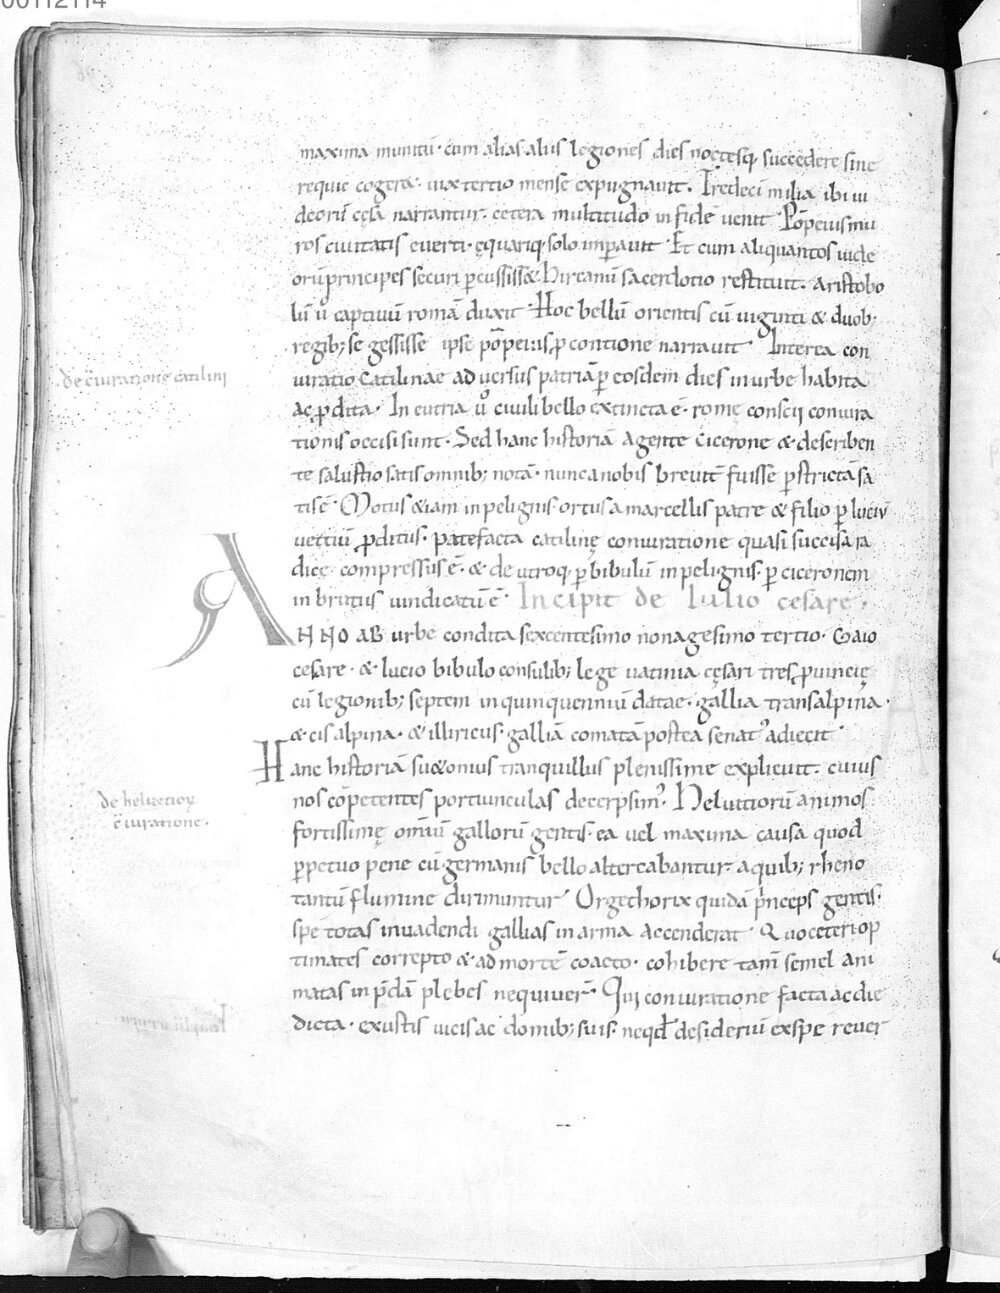 00112114
maxima munitū· cum alias aliis legiones dies noctesq; succedere sine
requie cogeret· uix tertio mense expugnauit. Tredeci milia ibi iu
deorū cęsa narrantur· cetera multitudo in fidē uenit· Pōpeius mu
ros ciuitatis euerti· ęquariq; solo imꝑauit· Et cum aliquantos iude
orū principes securi ꝑcussiss&· hircanū sacerdotio restituit. aristobo
lū ů captiuū romā duxit· Hoc bellū orientis cū uiginti & duob;
regib; se gessisse ipse pōpeius ꝓ contione narrauit· Interea con
de c̄iuratione catilini
iuratio Catilinae aduersus patriā ꝑ eosdem dies in urbe habita
ac ꝓdita· In eutria ů ciuili bello extincta ē· romę conscii coniura
tionis occisi sunt· Sed hanc historiā agente cicerone & describen
te salustio satis omnib; notā· nunc a nobis breuit̄ fuisse ꝑstrictā sa
tis ē· Motus &iam in pelignis ortus a marcellis patre & filio ꝑ luciū
uettiū ꝓditus· patefacta catilinę coniuratione quasi succisa ra
dice· compressus ē· & de utroq; ꝑ bibulū in pelignis· ꝑ ciceronem
in brutiis uindicatū ē· Incipit de Iulio cesare·
ANNO AB urbe condita sexcentesimo nonagesimo tertio· Gaio
cesare· & lucio bibulo consulib; lege uatinia cęsari tres ꝓuincię
cū legionib; septem in quinquenniū datae· gallia transalpina·
& cisalpina· & illiricus· galliā comatā postea senatꝰ adiecit·
Hanc historiā su&onius tranquillus plenissime explicuit. cuius
de heluetioꝝ
c̄iuratione·
nos cōpetentes portiunculas decerpsimꝰ· Heluitiorū animos
fortissimę omiū gallorū gentis· ea uel maxima causa quod
ꝑpetuo pene cū germanis bello altercabantur· a quib; rheno
tantū flumine dirimuntur· Orgethorix quidā p̄nceps gentis·
spe totas inuadendi gallias in arma accenderat· Quo ceteri op
timates correpto & ad mortē coacto· cohibere tam̄ semel ani
matas in p̄dā plebes nequiuer̄· Qui coniuratione facta ac die
dicta· exustis uicis ac domib; suis· neqd̄ desideriū ex spe reuer